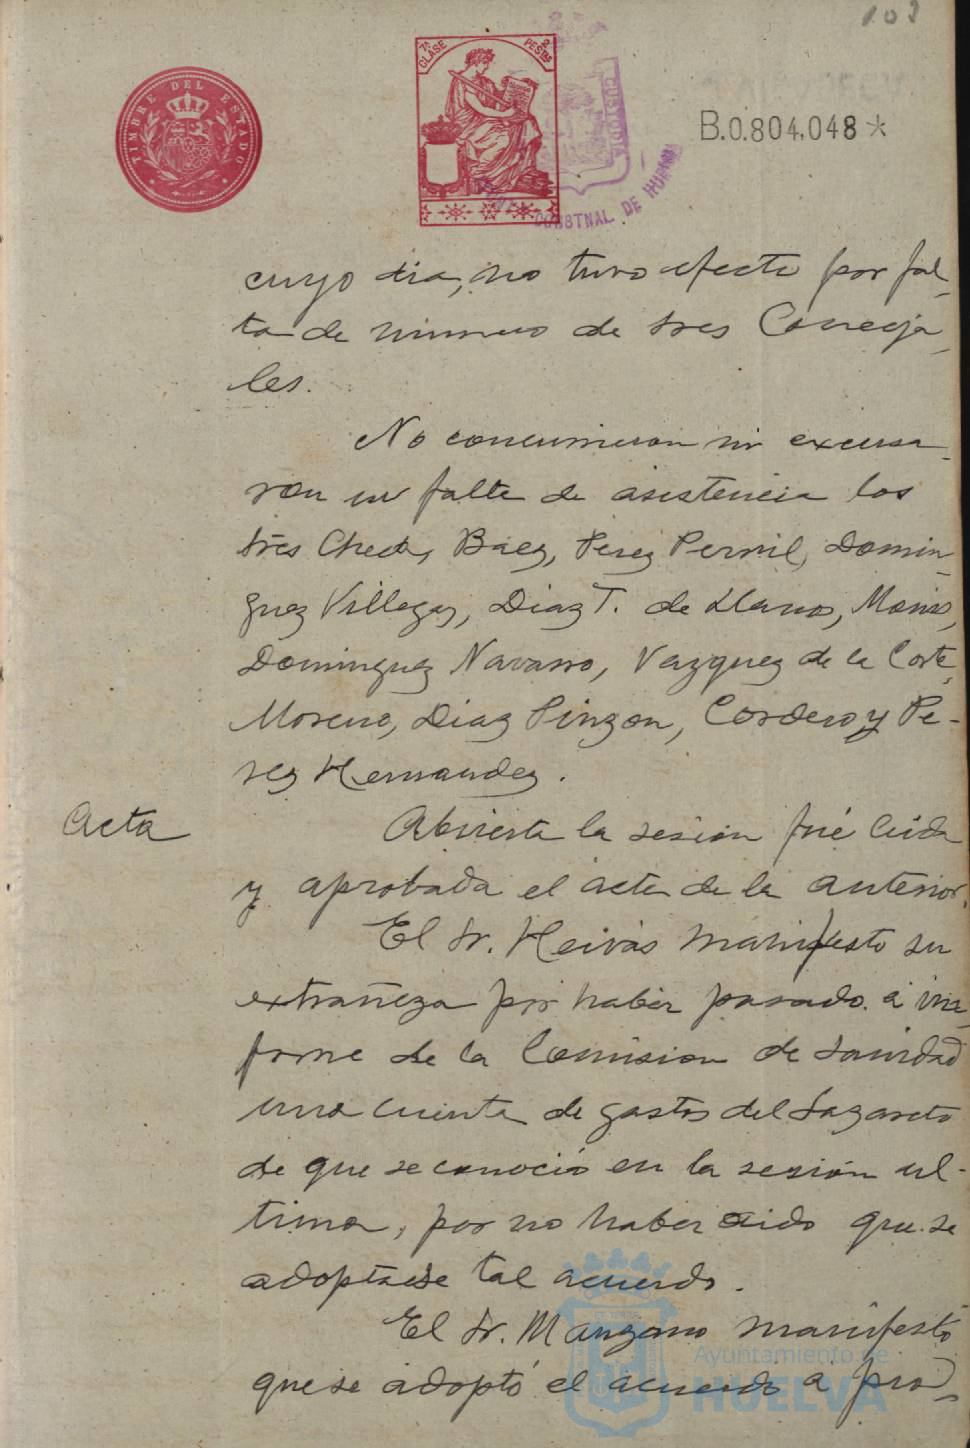 103
TIMBRE DEL ESTADO
7ª CLASE
2 PESTAS
CUSTODIA
CONSTNAL. DE HUELVA
B.0.804,048*
cuyo dia, no tuvo efecto por fal-
ta de número de Sres Conceja-
les.
No concurrieron ni excusa-
ron su falta de asistencia los
Sres Checa, Báez, Perez Pernil, Domin-
guez Villegas, Diaz T. de Llano,
Dominguez Navarro, Vazquez de la Corte,
Moreno, Diaz Pinzon, Cordero y Pe-
rez Hernandez.
Acta
Abierta la sesión fué leida
y aprobada el acta de la anterior.
El Sr. manifestó su
extrañeza por haber pasado á in-
forme de la Comision de Sanidad
una cuenta de gastos del Lazareto
de que se conoció en la sesión ul-
tima, por no haber oido que se
adoptase tal acuerdo.
El Sr. Manzano manifestó
que se adoptó el acuerdo á pro-
Ayuntamiento de
HUELVA